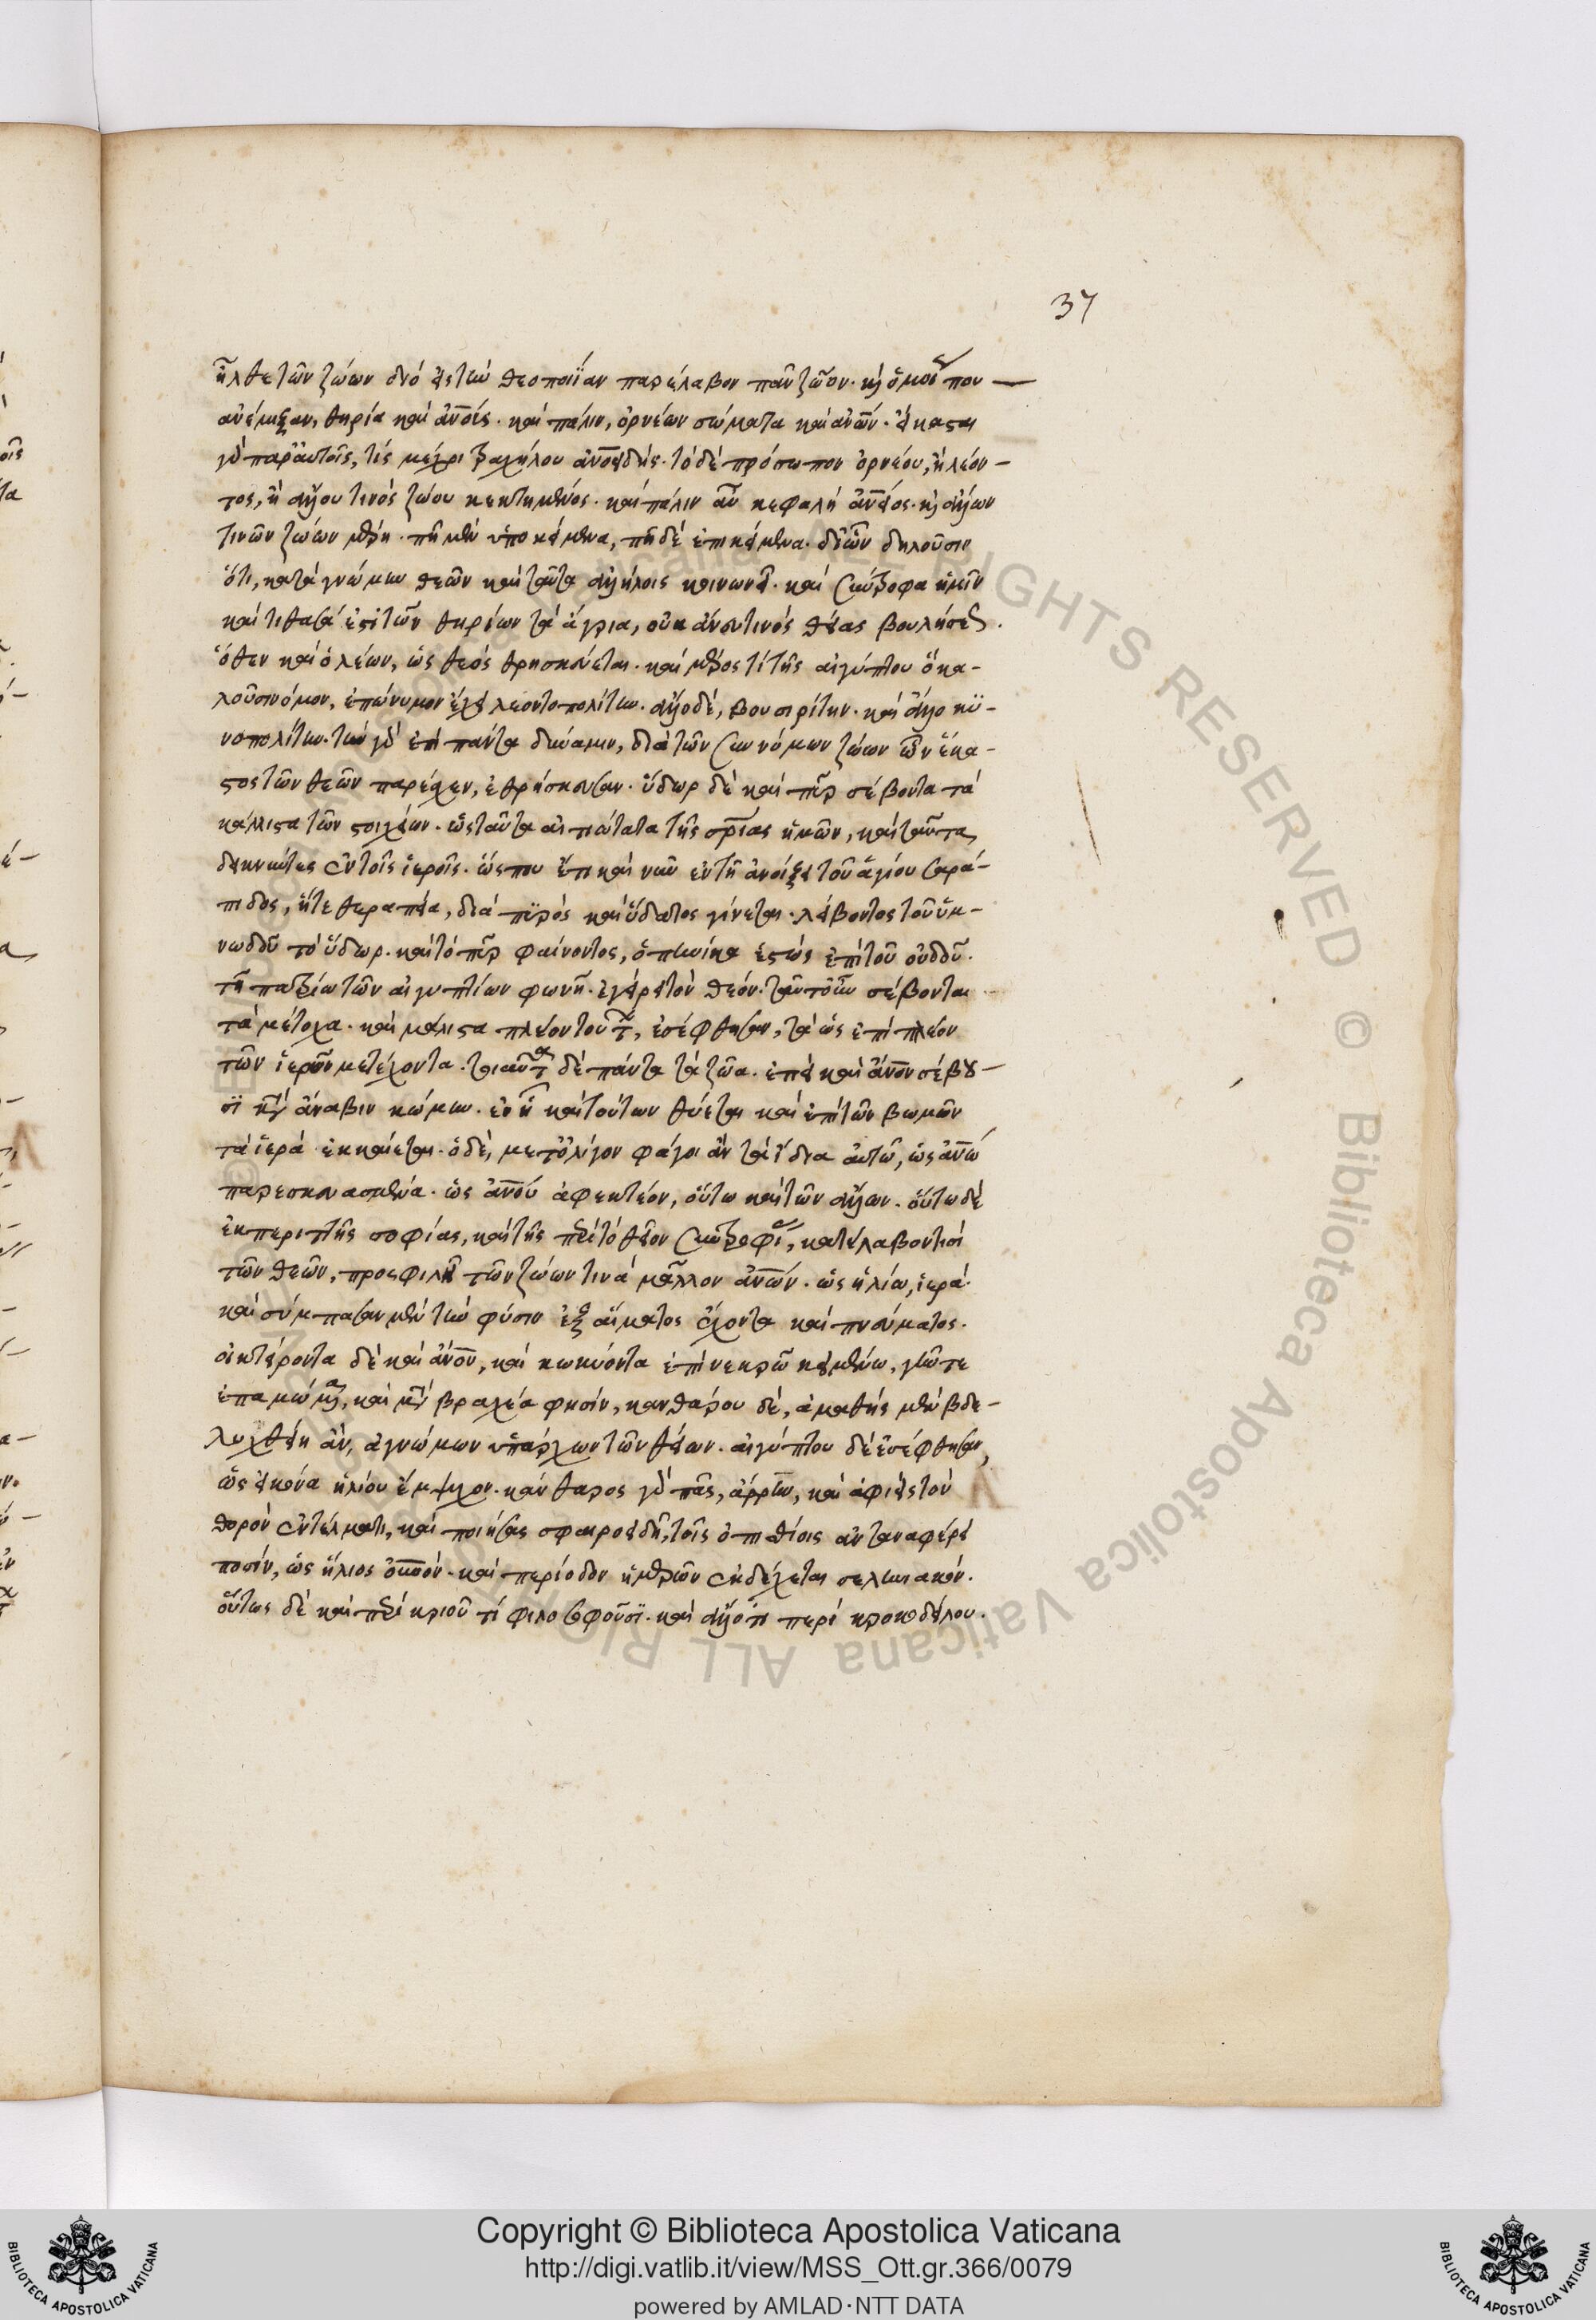 37
ἦλθε τῶν ζώων διὸ εἰς τὴν θεοποιΐαν παρέλαβον πᾶν ζῶον. καὶ ὁμοῦ που
ἀνέμιξαν, θηρία καὶ ἀνοις. καὶ πάλιν, ὀρνέων σώματα καὶ ἀνων. εἴκασται
γὰρ παρ' αὐτοῖς, τὶς μέχρι τραχήλου ἀνοειδής. τὸ δὲ πρόσωπον ὀρνέου, ἢ λέον-
τος, ἢ ἄλλου τινὸς ζώου κεκτημένος. καὶ πάλιν αὖ κεφαλὴ ἀνειος. καὶ ἄλλων
τινῶν ζώων μέρη. πῆ μὲν ὑποκείμενα, πῆ δὲ ἐπικείμενα. δι' ὧν δηλοῦσιν
ὅτι, κατὰ γνώμην θεῶν καὶ ταῦτα ἀλλήλοις κοινωνεῖ. καὶ σύντροφα ἡμῖν
καὶ τιθασὰ ἐστὶ τῶν θηρίων τὰ ἄγρια, οὐκ ἄνευ τινὸς θείας βουλήσεως.
ὅθεν καὶ ὁ λέων, ὡς θεὸς θρησκεύεται. καὶ μέρος τὶ τῆς αἰγύπτου ὃ κα-
λοῦσι νόμον, ἐπώνυμον ἔχει λεοντοπολίτην. ἄλλο δέ, βουσιρίτην. καὶ ἄλλο κυ-
νοπολίτην. τὴν γὰρ ἐπὶ πάντα δύναμιν, διὰ τῶν συννόμων ζώων ὧν ἕκα-
στος τῶν θεῶν παρέσχεν, ἐθρήσκευσαν. ὕδωρ δὲ καὶ πῦρ σέβονται τὰ
κάλλιστα τῶν στοιχείων. ὡς ταῦτα αἰτιώτατα τῆς σρίας ἡμῶν, καὶ ταῦτα
δεικνύντες ἐν τοῖς ἱεροῖς. ὥς που ἔτι καὶ νῦν ἐν τῇ ἀνοίξει τοῦ ἁγίου σαρά-
πιδος, ἥτε θεραπεία, διὰ πυρὸς καὶ ὕδατος γίνεται. λείβοντος τοῦ ὑμ-
νωδοῦ τὸ ὕδωρ. καὶ τὸ πῦρ φαίνοντος, ὁπηνίκα ἑστὼς ἐπὶ τοῦ οὐδοῦ.
τῇ πατρίῳ τῶν αἰγυπτίων φωνῇ. ἐγείρει τὸν θεόν. ταῦτ' οὖν σέβονται
τὰ μέτοχα. καὶ μάλιστα πλέον τούτων, ἐσέφθησαν, τὰ ὡς ἐπὶ πλέον
τῶν ἱερῶν μετέχοντα. τοιαῦτα δὲ πάντα τὰ ζῶα. ἐπεὶ καὶ ἄνον σέβου-
σι κατὰ ἄναβιν κώμην. ἐν ᾗ καὶ τούτων θύεται καὶ ἐπὶ τῶν βωμῶν
τὰ ἱερὰ ἐκκαίεται. ὁ δὲ, μετ' ὀλίγον φάγοι ἂν τὰ ἴδια αὐτῶ, ὡς ἀνω
παρεσκευασμένα. ὡς ἀνου ἀφεκτέον, οὕτω καὶ τῶν ἄλλων. οὕτω δὲ
ἐκ περιττῆς σοφίας, καὶ τῆς περὶ τὸ θεῖον συντροφίας, κατέλαβον τισὶ
τῶν θεῶν, προσφιλῆ τῶν ζώων τινὰ μᾶλλον ἀνων. ὡς ἡλίω, ἱερά.
καὶ σύμπασαν μὲν τὴν φύσιν ἐξ αἵματος ἔχοντα καὶ πνεύματος.
οἰκτείροντα δὲ καὶ ἄνον, καὶ κωκύοντα ἐπὶ νεκρῶ κειμένω, γῆν τε
ἐπαμώμενα, καὶ μετὰ βραχέα φησίν, κανθάρου δέ, ἀμαθὴς μὲν βδε-
λυχθείη ἂν, ἀγνώμων ὑπάρχων τῶν θείων. αἰγύπτου δὲ ἐσέφθησαν,
ὡς εἰκόνα ἡλίου ἔμψυχον. κάνθαρος γὰρ πᾶς, ἄρρην, καὶ ἀφιεὶς τὸν
θορὸν ἐν τέλματι, καὶ ποιήσας σφαιροειδῆ, τοῖς ὀπισθίοις ἀνταναφέρει
ποσίν, ὡς ἥλιος οὐνον. καὶ περίοδον ἡμερῶν ἐκδέχεται σεληνιακόν.
οὕτως δὲ καὶ περὶ κριοῦ τί φιλοσοφοῦσι. καὶ ἄλλό τι περὶ κροκοδείλου.
Copyright © Biblioteca Apostolica Vaticana
http://digi.vatlib.it/view/MSS_Ott.gr.366/0079
powered by AMLAD·NTT DATA